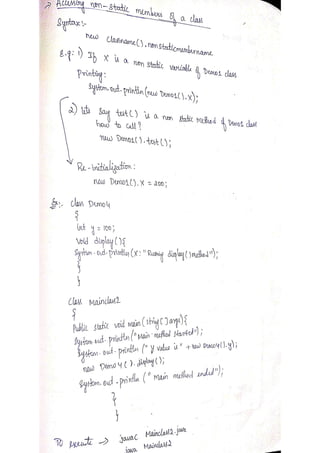 → Accessing non-static members of a class
Syntax:-
new Classname().nonstaticmembername
e.g: 1) If x is a non static variable of Demo1 class
Printing:
System.out.println(new Demo1().x);
2) lets say test() is a non static Method of Demo1 class
how to call?
new Demo1().test();
Re-Initialization:
new Demo1().x = 200;
Ex:- Class Demo4
{
int y = 100;
Void display(){
System.out.println(x: "Running display() method");
}
}
Class Mainclass2
{
Public static void main(String[] args){
System.out.println("Main method started");
System.out.println("y value is" + new Demo4().y);
new Demo4().display();
System.out.println("Main method ended");
}
}
To execute → javac Mainclass2.java
java Mainclass2